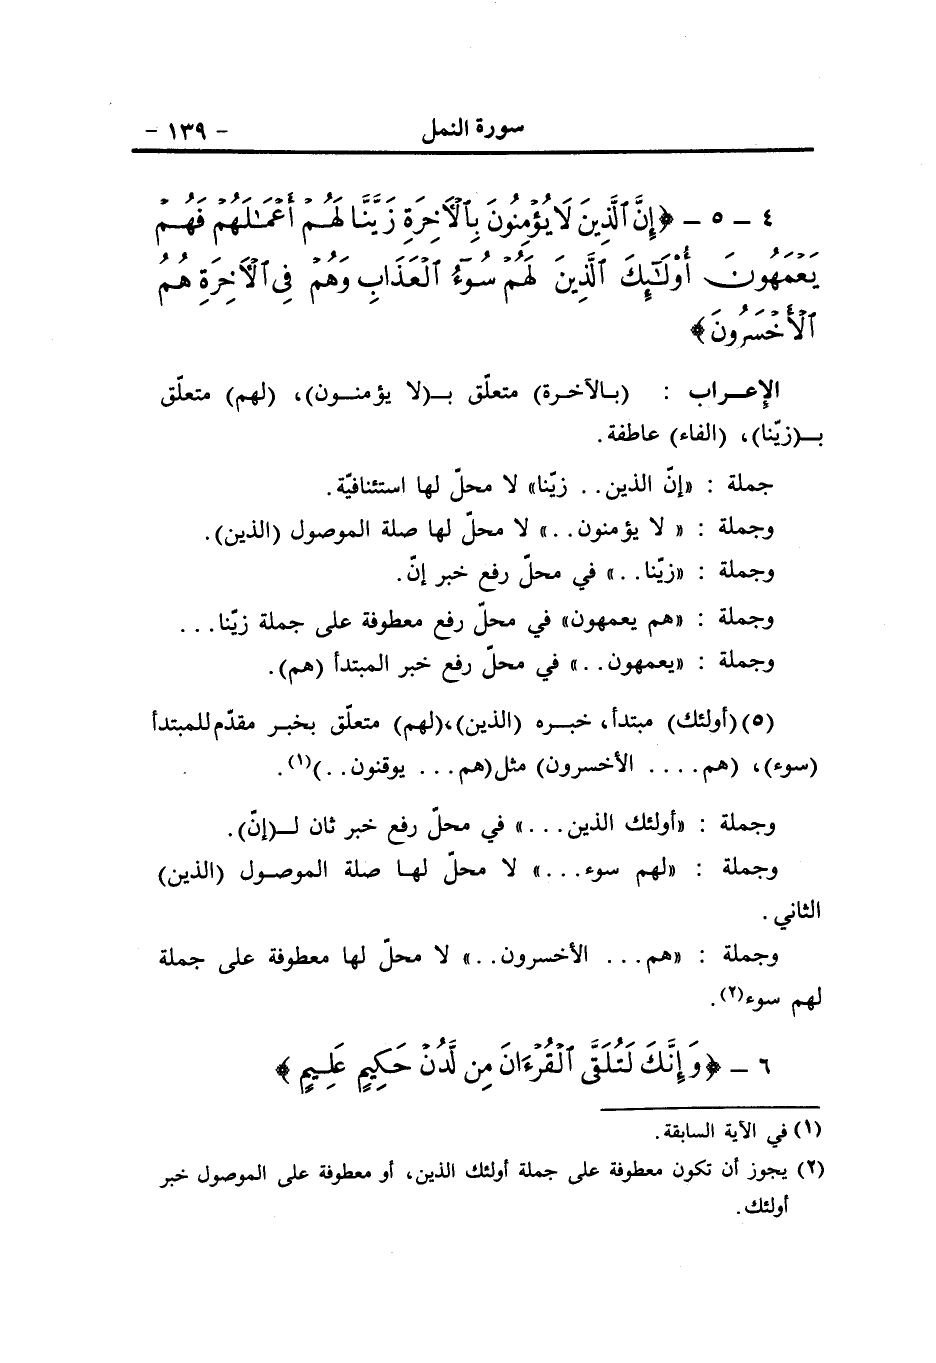 سورة النمل - ١٣٩ -
٤ - ٥ - ﴿إِنَّ ٱلَّذِينَ لَا يُؤْمِنُونَ بِٱلْأَخِرَةِ زَيَّنَّا لَهُمْ أَعْمَـٰلَهُمْ فَهُمْ
يَعْمَهُونَ أُوْلَـٰٓئِكَ ٱلَّذِينَ لَهُمْ سُوٓءُ ٱلْعَذَابِ وَهُمْ فِى ٱلْأَخِرَةِ هُمُ
ٱلْأَخْسَرُونَ﴾
الإعـراب : (بـالآخـرة) متعلّق بـ(لا يؤمنـون)، (لهم) متعلّق
بـ(زيّنا)، (الفاء) عاطفة.
جملة : «إنّ الذين.. زيّنا» لا محلّ لها استئنافيّة.
وجملة : « لا يؤمنون..» لا محلّ لها صلة الموصول (الذين).
وجملة : «زيّنا..» في محلّ رفع خبر إنّ.
وجملة : «هم يعمهون» في محلّ رفع معطوفة على جملة زيّنا...
وجملة : «يعمهون..» في محلّ رفع خبر المبتدأ (هم).
(٥)(أولئك) مبتدأ، خبـره (الذين)،(لهم) متعلّق بخبـر مقدّم للمبتدأ
(سوء)، (هم.... الأخسرون) مثل(هم... يوقنون..)(١).
وجملة : «أولئك الذين...» في محلّ رفع خبر ثان لـ(إنّ).
وجملة : «لهم سوء...» لا محلّ لهـا صلة الموصـول (الذين)
الثاني.
وجملة : «هم... الأخسرون..» لا محلّ لها معطوفة على جملة
لهم سوء(٢).
٦ - ﴿وَإِنَّكَ لَتُلَقَّى ٱلْقُرْءَانَ مِن لَّدُنْ حَكِيمٍ عَلِيمٍ﴾
(١) في الآية السابقة.
(٢) يجوز أن تكون معطوفة على جملة أولئك الذين، أو معطوفة على الموصول خبر
أولئك.